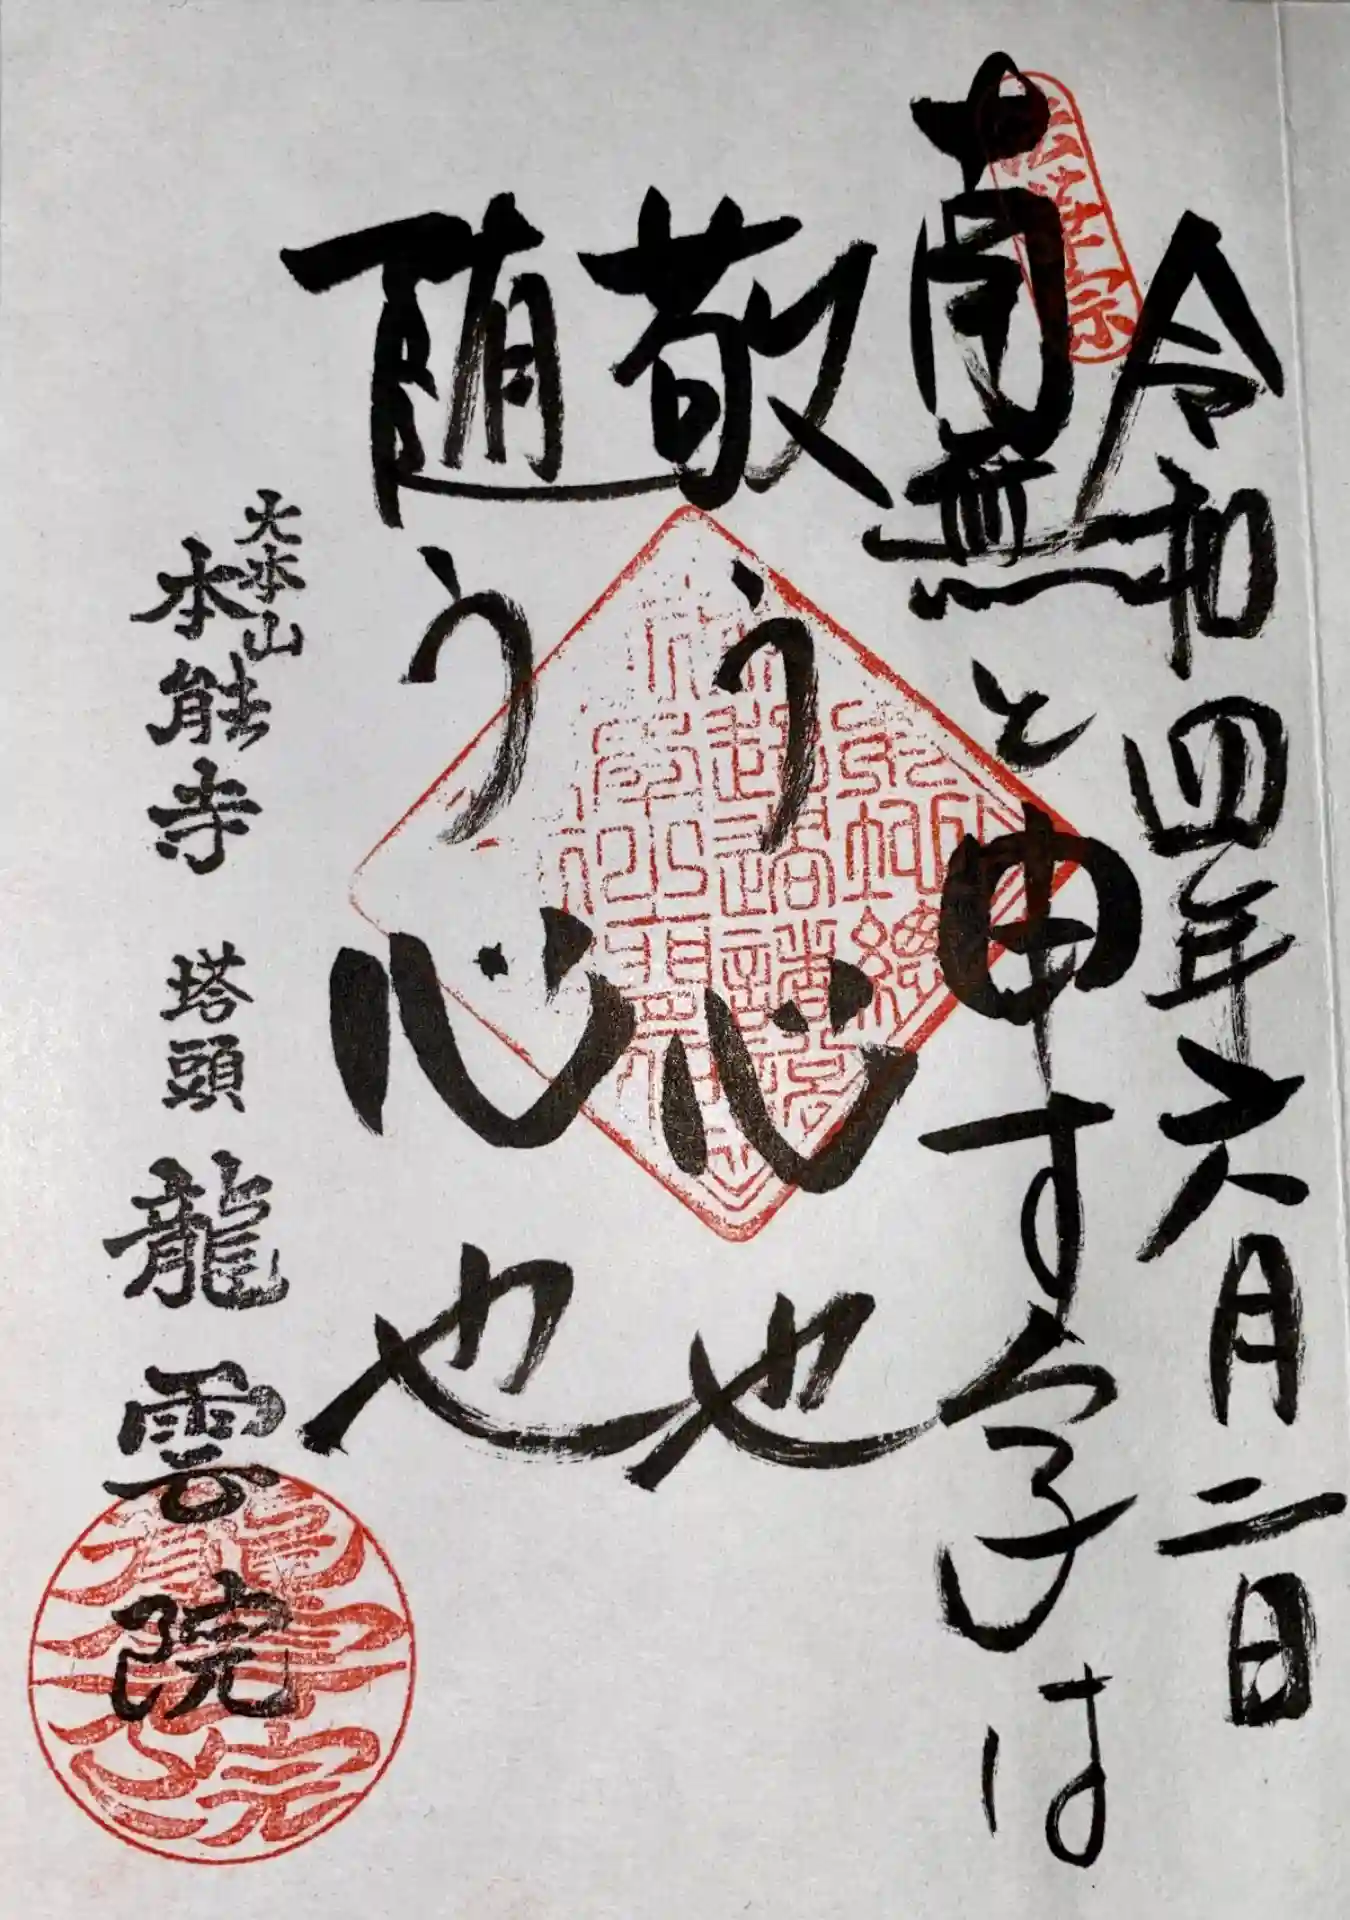 令和四年六月二日
南無と申す字は
敬う心也
随う心也
大本山
本能寺 塔頭 龍雲院
龍雲院